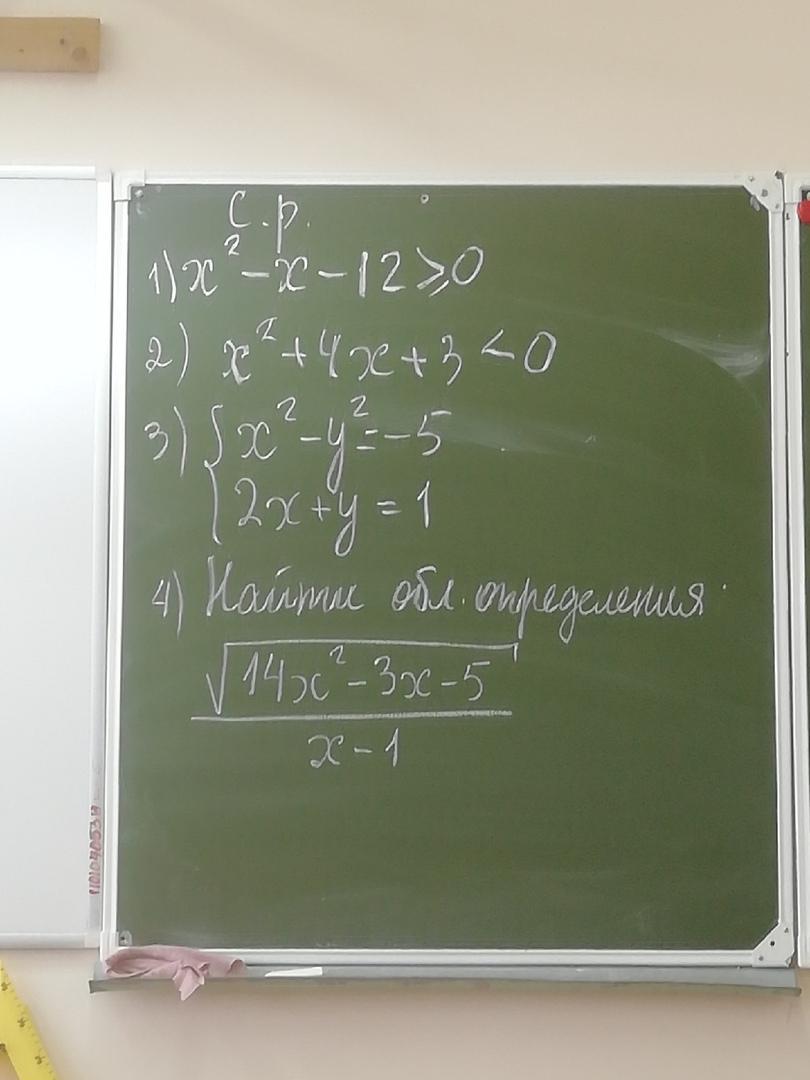 С.р.
1) x² - x - 12 ⩾ 0
2) x² + 4x + 3 < 0
3) { x² - y² = -5
{ 2x + y = 1
4) Найти обл. определения.
√14x² - 3x - 5
x - 1